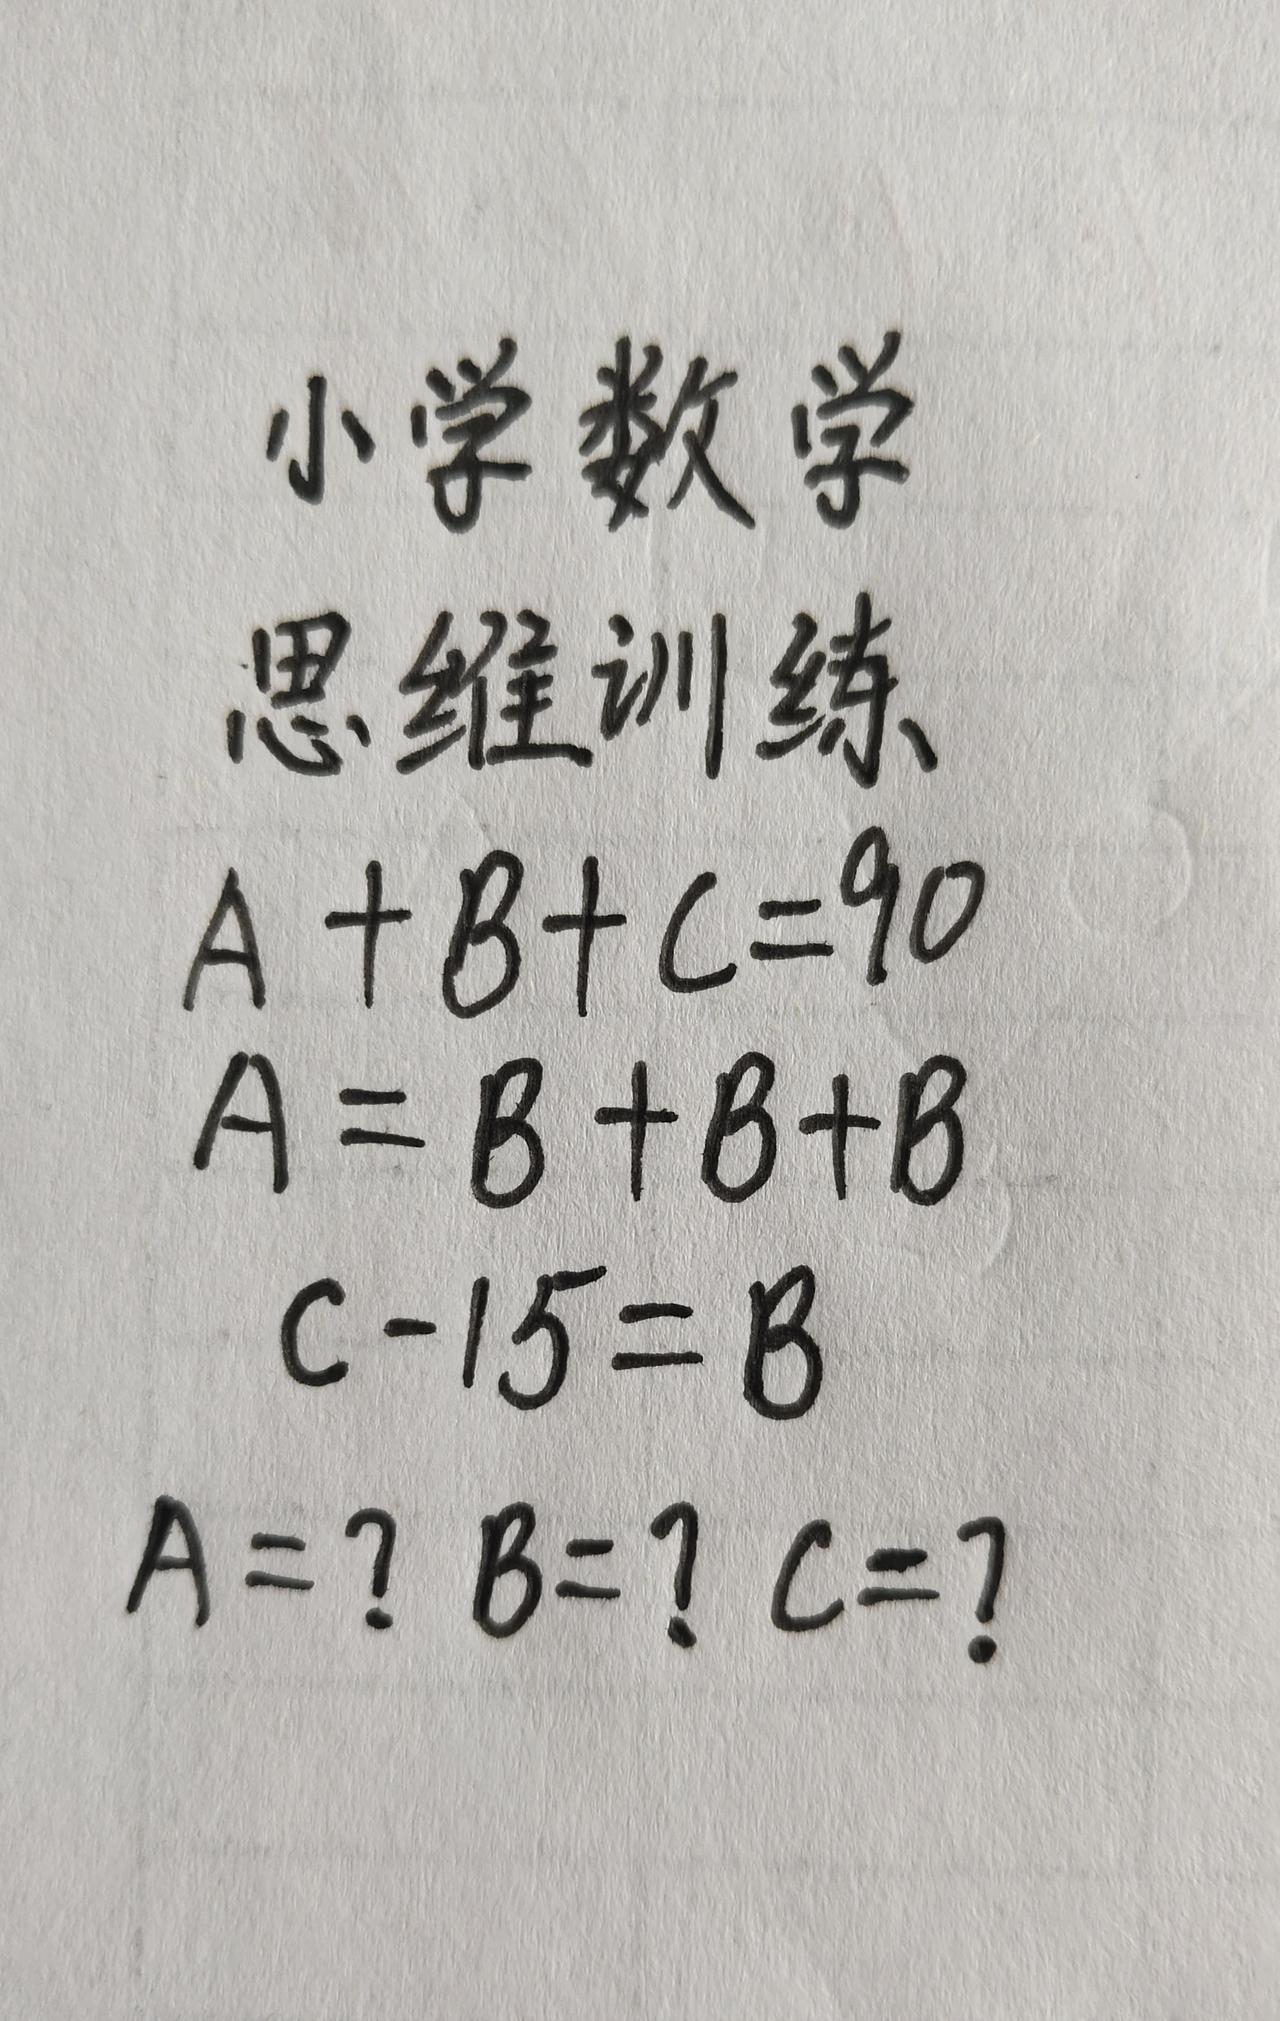 小学数学
思维训练
A+B+C=90
A=B+B+B
C-15=B
A=? B=? C=?